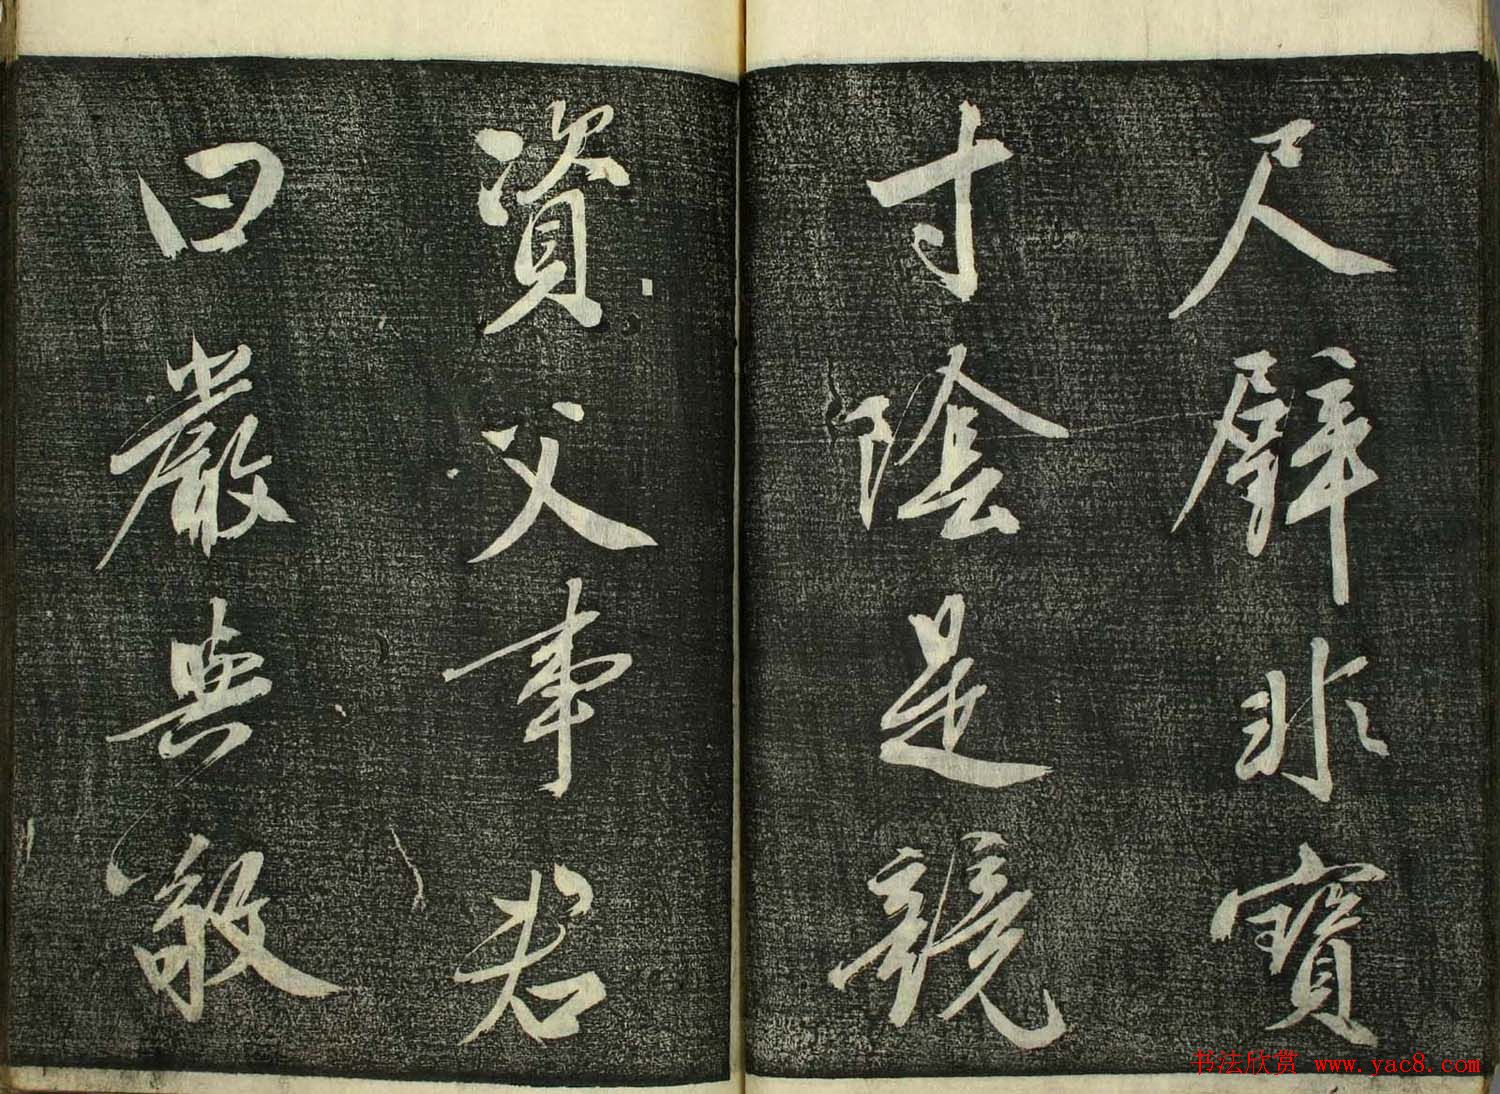 尺璧非寶
寸陰是競
資父事君
曰嚴與敬
书法欣赏 www.yac8.com